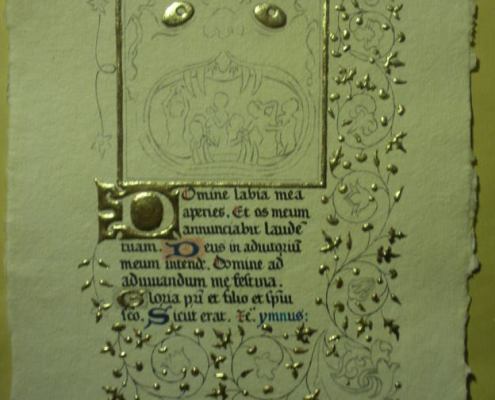 Domine labia mea
aperies. Et os meum
annunciabit laude
tuam. Deus in adiutoriu
meum intende. Domine ad
adiuuandum me festina.
Gloria pri et filio et spiui
sco. Sicut erat. Ec ymnus: